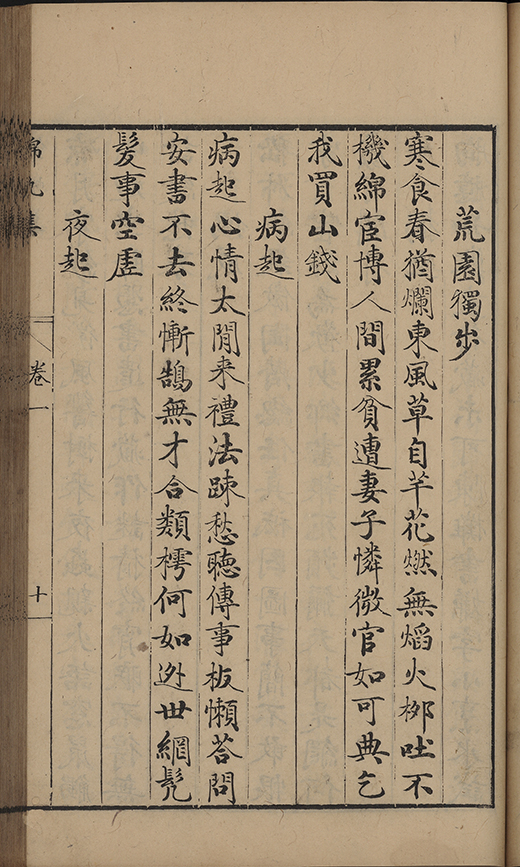 荒園獨步
寒食春猶爛東風草自芊花燃無熖火桞吐不
機綿宦博人間累貧遭妻子憐微官如可典乞
我買山錢
病起
病起心情太閒来禮法踈愁聽傳事板懶荅問
安書不去終慚鵠無才合類樗何如迯世網髠
髪事空虛
夜起
集
卷一
十